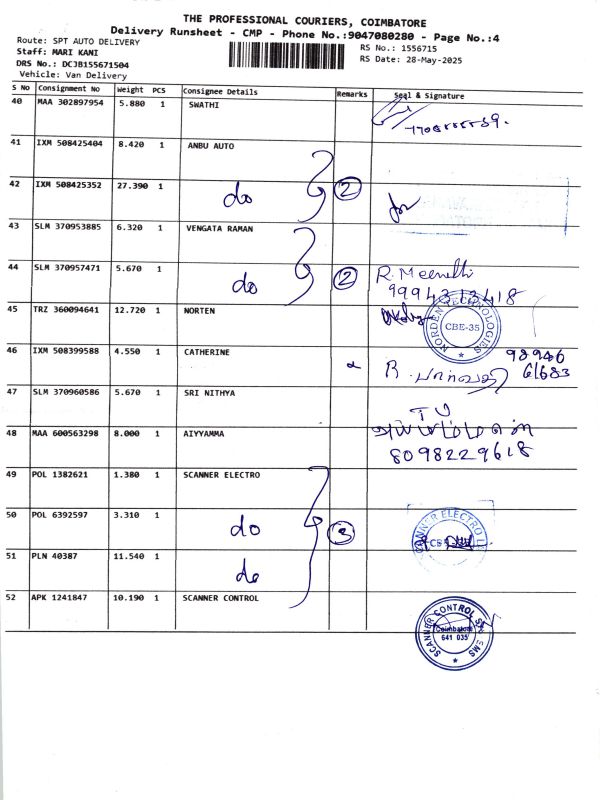 THE PROFESSIONAL COURIERS, COIMBATORE
Delivery Runsheet - CMP - Phone No.:9047080280 - Page No.:4
Route: SPT AUTO DELIVERY
Staff: MARI KANI
DRS No.: DCJB155671504
Vehicle: Van Delivery
RS No.: 1556715
RS Date: 28-May-2025
S No Consignment No Weight PCS Consignee Details Remarks Seal & Signature
40 MAA 302897954 5.880 1 SWATHI
41 IXM 508425404 8.420 1 ANBU AUTO
42 IXM 508425352 27.390 1 do 2
43 SLM 370953885 6.320 1 VENGATA RAMAN
44 SLM 370957471 5.670 1 do 2 R. Meenathi
9994313418
45 TRZ 360094641 12.720 1 NORTEN NORDEN TECHNOLOGIES CBE-35
46 IXM 508399588 4.550 1 CATHERINE R. பார்வதி 98946
61683
47 SLM 370960586 5.670 1 SRI NITHYA
48 MAA 600563298 8.000 1 AIYYAMMA
8098229618
49 POL 1382621 1.380 1 SCANNER ELECTRO
50 POL 6392597 3.310 1 do 3 SCANNER ELECTRO
51 PLN 40387 11.540 1 do
52 APK 1241847 10.190 1 SCANNER CONTROL SCANNER CONTROL
Coimbatore
641 035